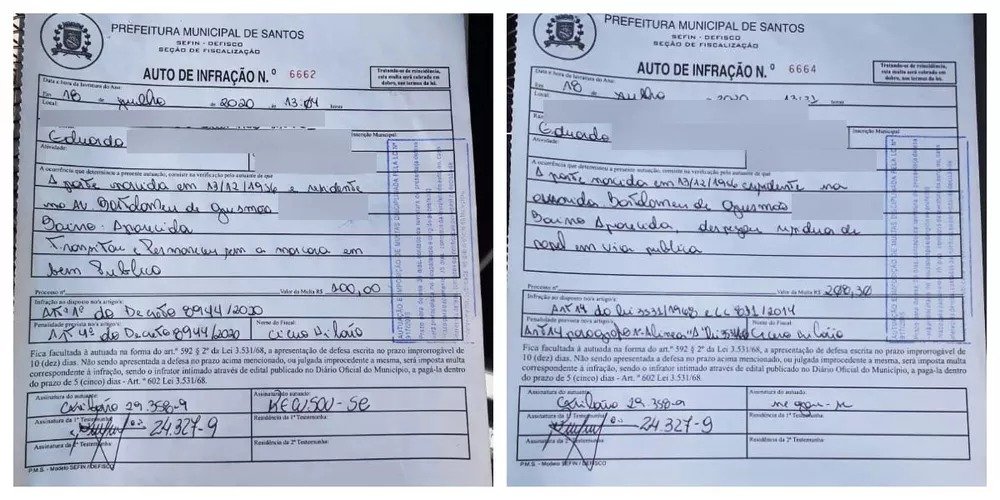 PREFEITURA MUNICIPAL DE SANTOS
SEFIN - DEFISCO
SEÇÃO DE FISCALIZAÇÃO
AUTO DE INFRAÇÃO N.º 6662
Tratando-se de reincidência,
esta multa será cobrada em
dobro, nos termos da lei.
Data e hora da lavratura do Auto:
Em 18 de julho de 2020 13:04 horas
Local:
Inscrição Municipal
Eduardo
Atividade:
A ocorrência que determinou a presente autuação, consiste na verificação pelo autuante de que
A parte nascida em 13/12/1956 e residente
na Av Bartolomeu de Gusmão
Bairro: Aparecida
Transitou e Permaneceu sem a mascara em
bem Publico
Processo nº
Valor da Multa R$ 100,00
Infração ao disposto no/s artigo/s:
Artº 1º do Decreto 8944/2020
Penalidade prevista no/s artigo/s:
Nome do Fiscal:
Artº 4º do Decreto 8944/2020 Cícero Hilário
Fica facultada à autuada na forma do art.º 592 § 2º da Lei 3.531/68, a apresentação de defesa escrita no prazo improrrogável de
10 (dez) dias. Não sendo apresentada a defesa no prazo acima mencionado, ou julgada improcedente a mesma, será imposta multa
correspondente à infração, sendo o infrator intimado através de edital publicado no Diário Oficial do Município, a pagá-la dentro
do prazo de 5 (cinco) dias - Art.º 602 Lei 3.531/68.
Assinatura do autuante:
Assinatura do autuado:
29.358-9
RECUSOU-SE
Assinatura da 1ª Testemunha:
Residência da 1ª Testemunha:
24.327-9
Assinatura da 2ª Testemunha:
Residência da 2ª Testemunha:
P.M.S. - Modelo SEFIN / DEFISCO
PREFEITURA MUNICIPAL DE SANTOS
SEFIN - DEFISCO
SEÇÃO DE FISCALIZAÇÃO
AUTO DE INFRAÇÃO N.º 6664
Tratando-se de reincidência,
esta multa será cobrada em
dobro, nos termos da lei.
Data e hora da lavratura do Auto:
Em 18 de julho de 2020 horas
Local:
Inscrição Municipal
Eduardo
Atividade:
A ocorrência que determinou a presente autuação, consiste na verificação pelo autuante de que
A parte nascida em 13/12/1956 e residente na
avenida Bartolomeu de Gusmão
Bairro Aparecida, despejou residuo de
papel em via publica
Processo nº
Valor da Multa R$ 208,30
Infração ao disposto no/s artigo/s:
Art 14 da lei 3531/1968 e LC 831/2014
Penalidade prevista no/s artigo/s:
Nome do Fiscal:
Cícero Hilário
Fica facultada à autuada na forma do art.º 592 § 2º da Lei 3.531/68, a apresentação de defesa escrita no prazo improrrogável de
10 (dez) dias. Não sendo apresentada a defesa no prazo acima mencionado, ou julgada improcedente a mesma, será imposta multa
correspondente à infração, sendo o infrator intimado através de edital publicado no Diário Oficial do Município, a pagá-la dentro
do prazo de 5 (cinco) dias - Art.º 602 Lei 3.531/68.
Assinatura do autuante:
Assinatura do autuado:
29.358-9
Assinatura da 1ª Testemunha:
Residência da 1ª Testemunha:
24.327-9
Assinatura da 2ª Testemunha:
Residência da 2ª Testemunha:
P.M.S. - Modelo SEFIN / DEFISCO